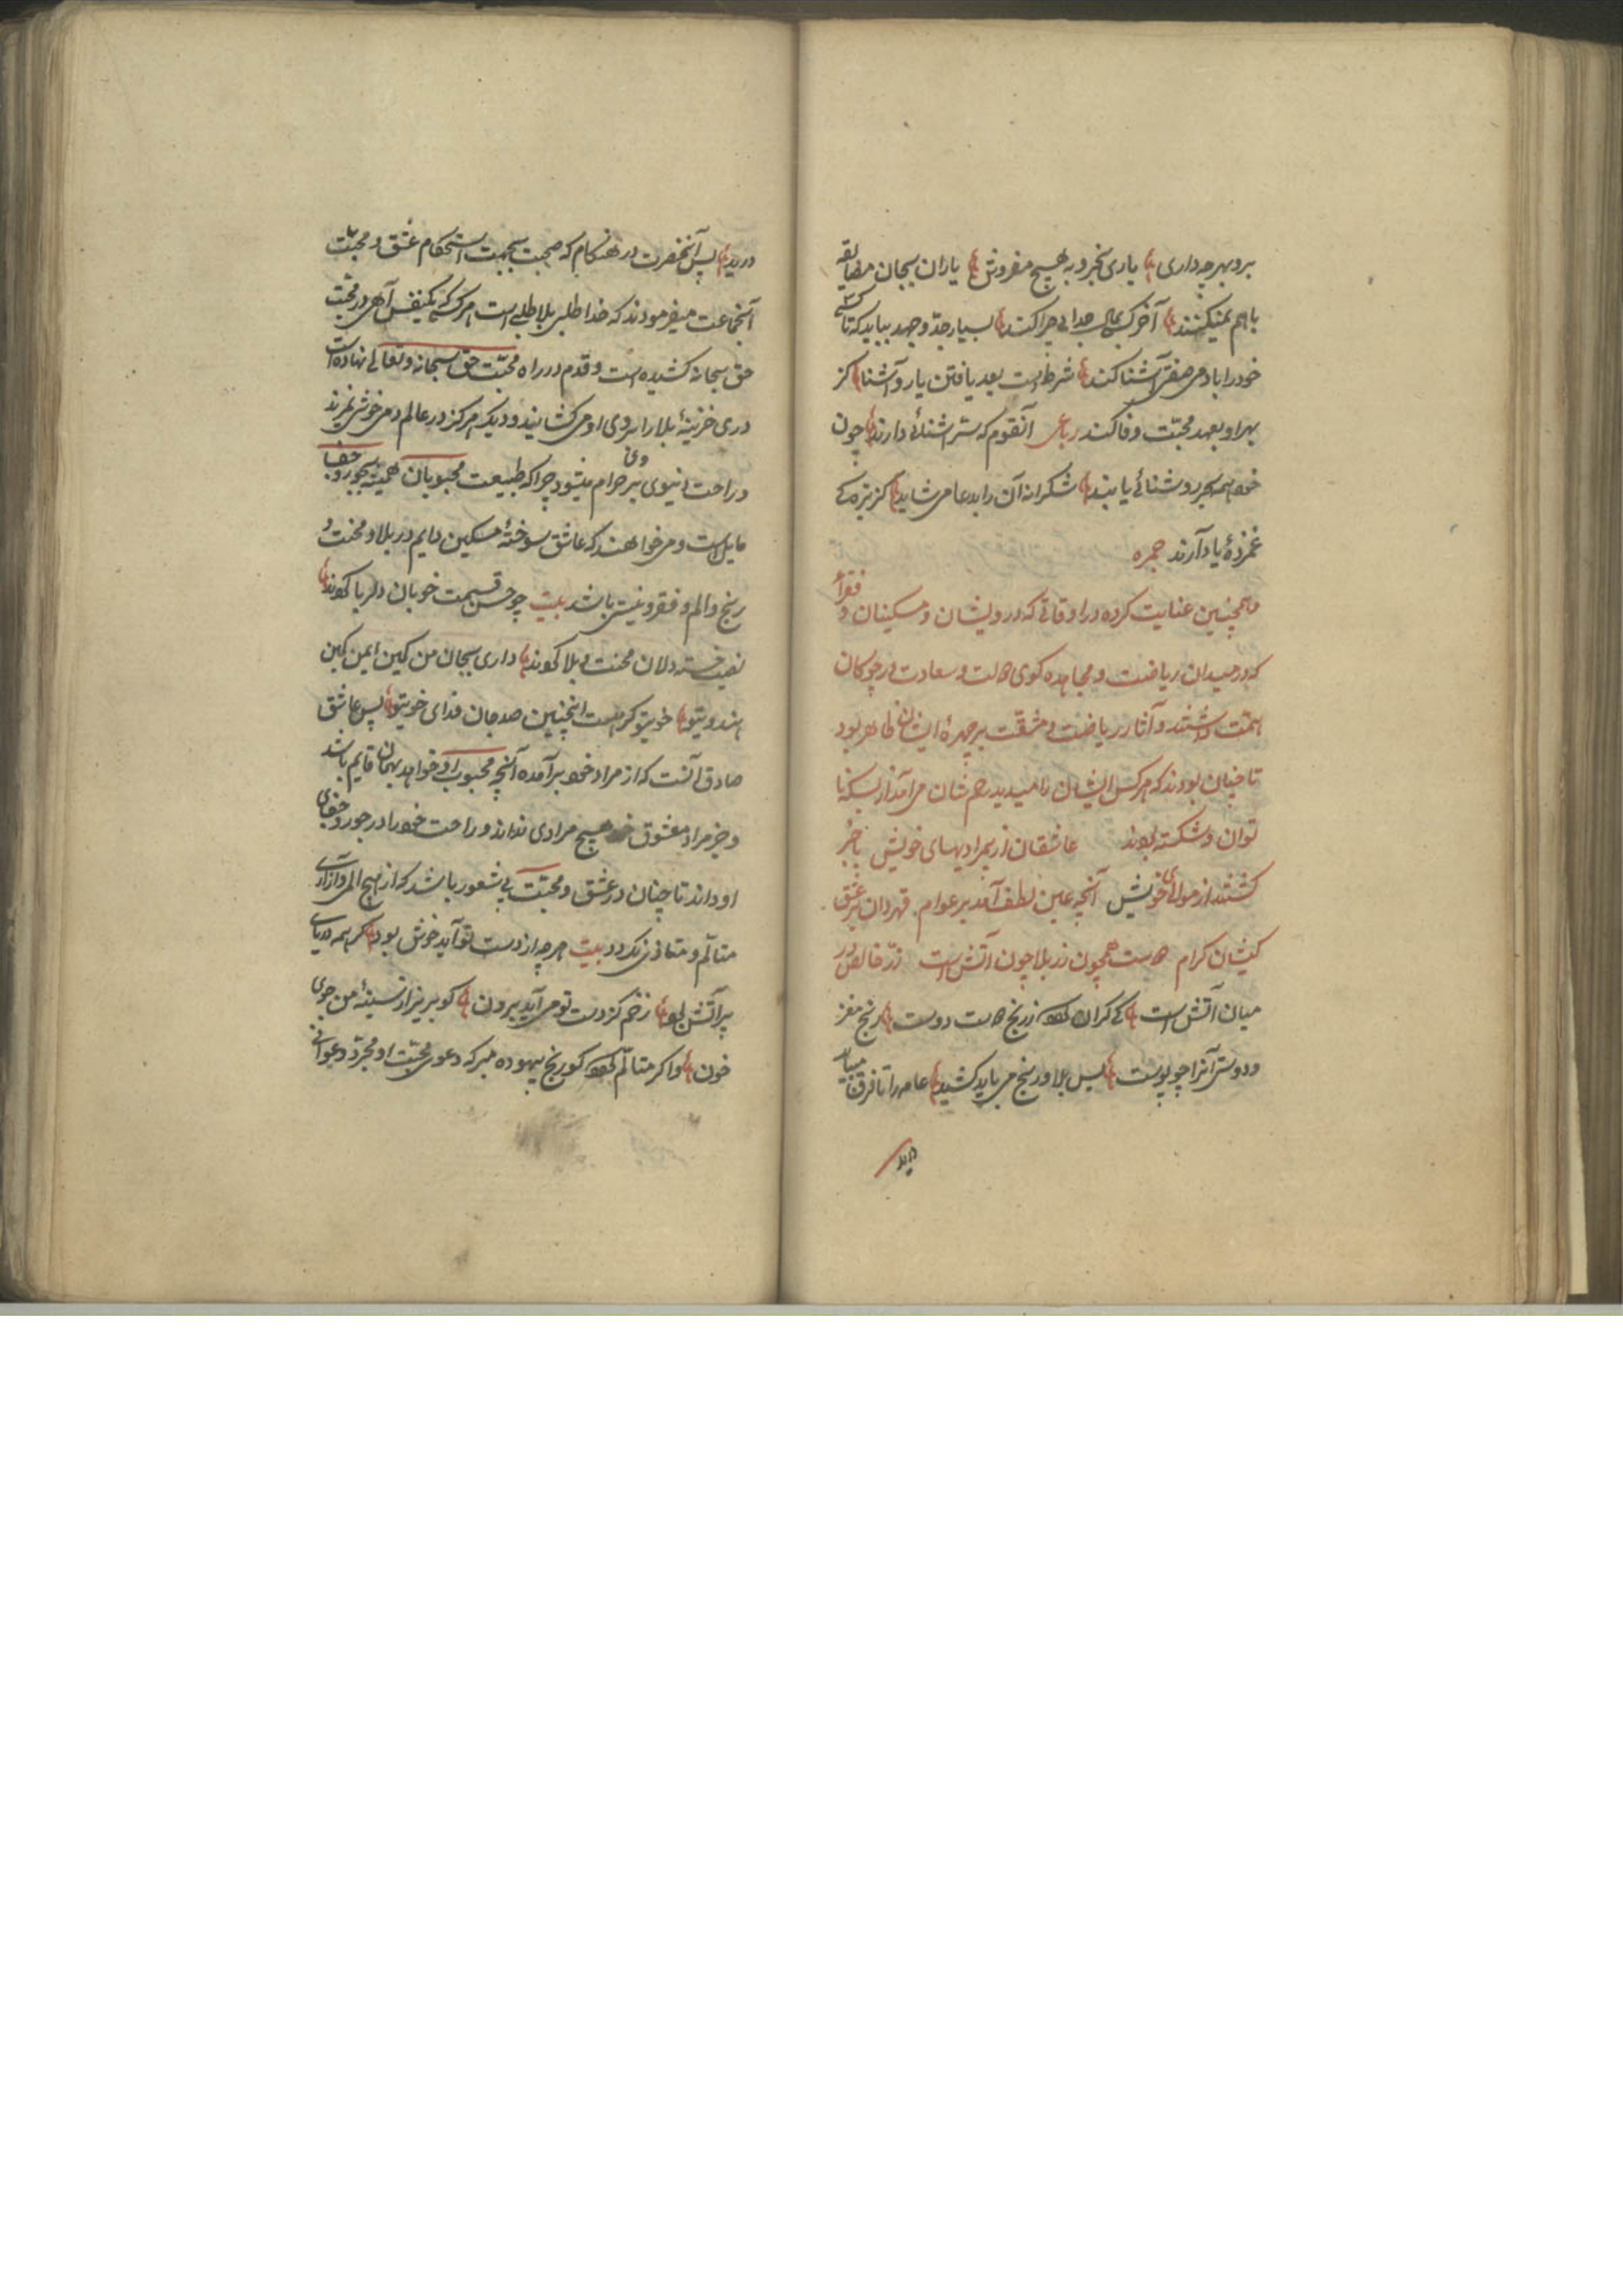 برو بهرچه داری یاری بخر و به هیچ مفروش یاران بجان مضایقه
با هم نمیکنند آخر کسی بحال جدایی چرا کند بسیار جد و جهد بباید که تا کسی
خود را با دمی صفت آشنا کند شرط است بعد یافتن یار و آشنا کز
بهر او بعهد محبت وفا کند رباعی آنقوم که سر آشنائی دارند چون
خود همه بروشنائی یابند شکرانه آن را بدعا می شاید کز بنده
غمزده یاد آرند جمره
و همچنین عنایت کرده در اوقاتی که درویشان و مسکینان و فقرا
که در میدان ریاضت و مجاهده گوی دولت و سعادت در چوگان
همت داشتند و آثار ریاضت و مشقت بر چهرهٔ ایشان ظاهر بود
تا چنان بودند که هرکس ایشان را میدید رحم شان می آمد از بسکه نا
توان و شکسته بودند عاشقان از بیمرادیهای خویش با خبر
گشتند از مولای خویش آنچه عین لطف آمد بر عوام قهر دان بر عشق
کیشان کرام دوست همچون زر بلا چون آتش است زر خالص در
میان آتش است کی گران رنج دوست رنج مغز
و دوستی آنرا چو پوست پس بلا و رنج می باید کشید عامه را تا فرق
دید
دید پس آنحضرت در هنگام که صحبت بجهت استحکام عشق و محبت با
آنجماعت میفرمودند که خدا طلبی بلا طلبی است هرکس که یکنفس آهی در محبت
حق سبحانه کشیده است و قدم در راه محبت حق سبحانه و تعالی نهاده است
دری خزینهٔ بلا را بروی او می گشایند و دیگر هرگز در عالم دمی خوش نمی زند
و راحت دنیوی بر وی حرام میشود چرا که طبیعت محبوبان همیشه بجور و جفا
مایل است و می خواهند که عاشق سوخته مسکین دایم در بلا و محنت و
رنج و الم و فقر و نیستی باشد بیت چو حسن قسمت خوبان دلربا کردند
نصیب خسته دلان محنت و بلا کردند داری بجان من کین ایمن کین
هندوی تو خوی تو گر هست اینچنین صد جان فدای خوی تو پس عاشق
صادق آنست که از مراد خود برآمده آنچه محبوب او خواهد بهمان قایم باشد
و جز مراد معشوق خود هیچ مرادی نداند و راحت خود را در جور و جفای
او داند تا چنان در عشق و محبت بی شعور باشد که از هیچ المی و آزاری
متالم و متاذی نگردد بیت هرچه از دست تو آید خوش بود گر همه دریای
پر آتش بود زخم کز دست تو می آید برون گو بریز از سینهٔ من جوی
خون و اگر متالم گو رنج بیهوده مبر که دعوی محبت او مجرد دعوائی